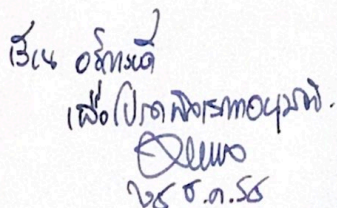 เรียน อธิการบดี
เพื่อโปรดพิจารณาอนุมัติ.
๒๕ ธ.ค. ๕๕